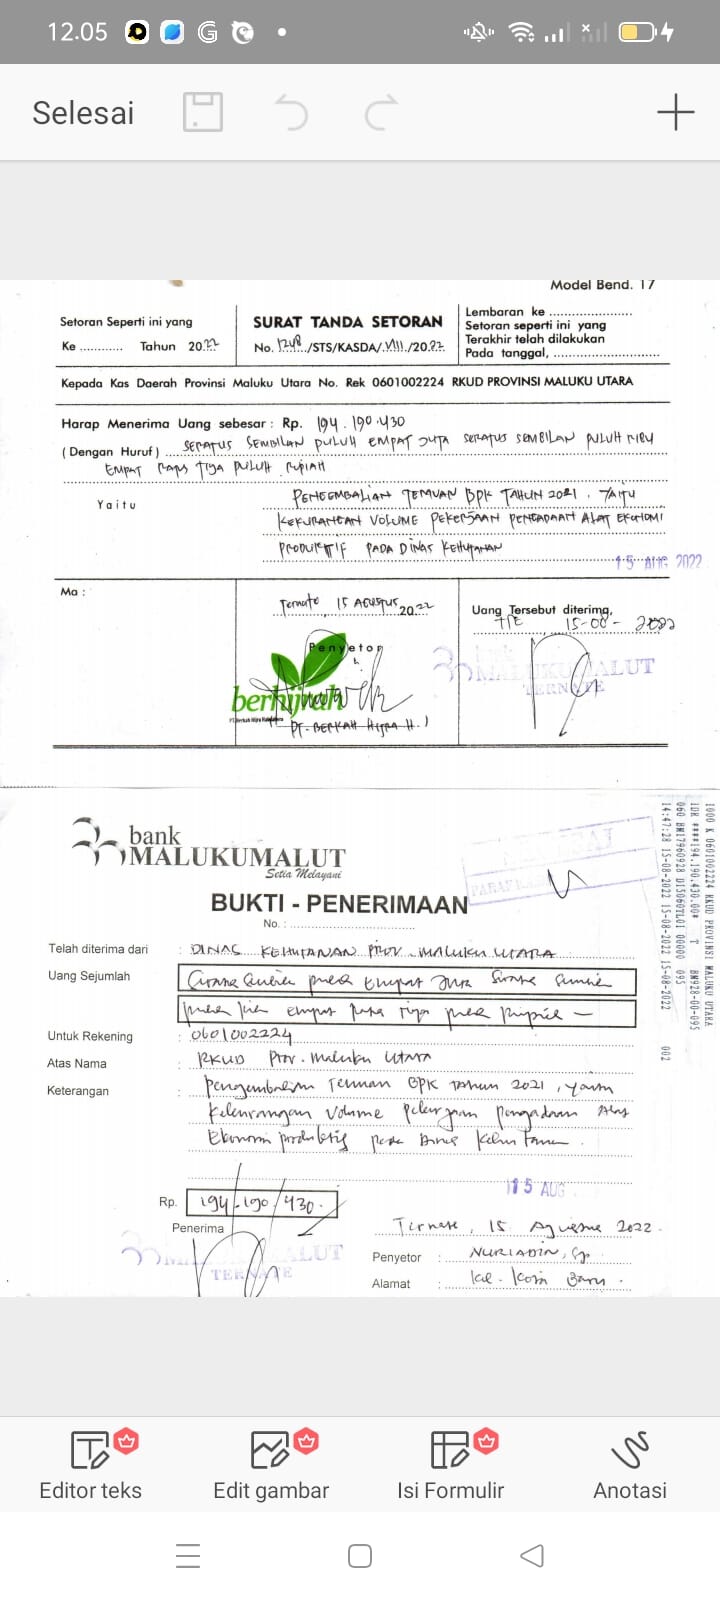 12.05
Selesai
Model Bend. 17
Setoran Seperti ini yang
Ke ........... Tahun 2022
SURAT TANDA SETORAN
No. 1248/STS/KASDA/VIII/2022
Lembaran ke ......................
Setoran seperti ini yang
Terakhir telah dilakukan
Pada tanggal, ............................
Kepada Kas Daerah Provinsi Maluku Utara No. Rek 0601002224 RKUD PROVINSI MALUKU UTARA
Harap Menerima Uang sebesar : Rp. 194.190.430
(Dengan Huruf) SERATUS SEMBILAN PULUH EMPAT JUTA SERATUS SEMBILAN PULUH RIBU
EMPAT RATUS TIGA PULUH RUPIAH
Yaitu
PENGEMBALIAN TEMUAN BPK TAHUN 2021, YAITU
KEKURANGAN VOLUME PEKERJAAN PENGADAAN ALAT EKONOMI
PRODUKTIF PADA DINAS KEHUTANAN
15 AUG 2022
Ma :
Ternate, 15 AGUSTUS 2022
Penyetor
berhijrah
PT. BERKAH HIJRA H.
Uang Tersebut diterima,
TTE 15-08-2022
MALUKUMALUT
TERNATE
bank
MALUKUMALUT
Setia Melayani
BUKTI - PENERIMAAN
No. :
Telah diterima dari : DINAS KEHUTANAN PROV. MALUKU UTARA
Uang Sejumlah
Untuk Rekening : 0601002224
Atas Nama : RKUD Prov. Maluku Utara
Keterangan : Pengembalian Temuan BPK Tahun 2021, yaitu
Kekurangan Volume pekerjaan pengadaan Alat
Ekonomi produktif pada Dinas Kehutanan.
15 AUG
Rp. 194.190.430.
Penerima
MALUKUMALUT
TERNATE
Ternate, 15 Agustus 2022.
Penyetor : NURIADIN, Sp.
Alamat : Kel. Kota Baru.
1000 K 0601002224 RKUD PROVINSI MALUKU UTARA
IDR ****194.190.430.00* T BM928-00-095
060 BM17960928 D15060TL01 00000 095
14:47:28 15-08-2022 15-08-2022 15-08-2022 002
Editor teks
Edit gambar
Isi Formulir
Anotasi